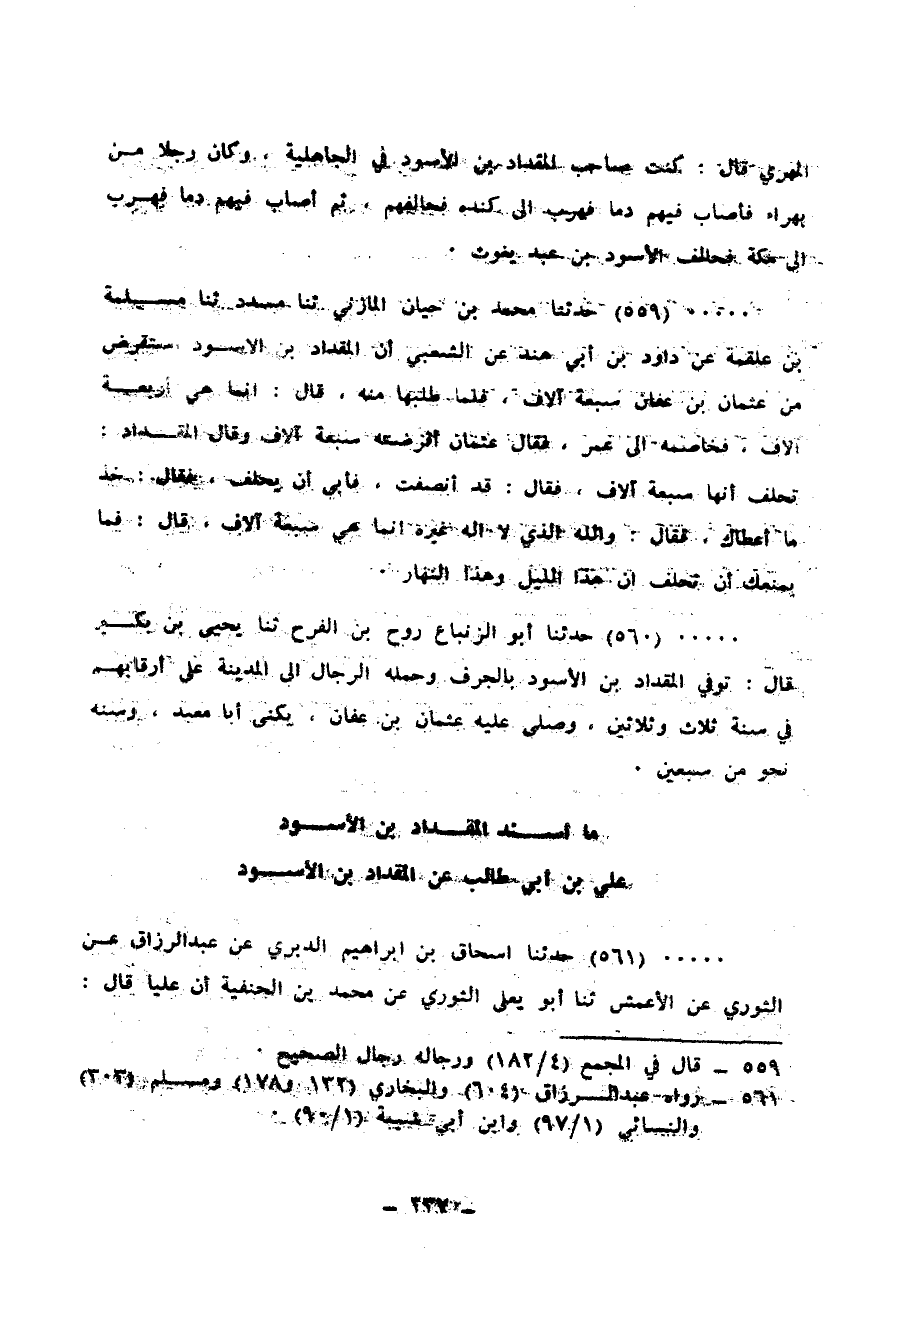 المهري قال : كنت صاحب المقداد بن الأسود في الجاهلية ، وكان رجلا من
بهراء فأصاب فيهم دما فهرب الى كنده فحالفهم ، ثم أصاب فيهم دما فهرب
الى مكة فحالف الأسود بن عبد يغوث ٠
٠٠٠٠٠ (٥٥٩) حدثنا محمد بن حيان المازني ثنا مسدد ثنا مسلمة
بن علقمة عن داود بن أبي هند عن الشعبي أن المقداد بن الاسود ستقرض
من عثمان بن عفان سبعة آلاف ، فلما طلبها منه ، قال : انما هي أربعة
الاف ، فخاصمه الى عمر ، فقال عثمان أقرضته سبعة آلاف وقال المقداد :
تحلف أنها سبعة آلاف ، فقال : قد أنصفت ، فأبى أن يحلف ، فقال : خذ
ما أعطاك ، فقال : والله الذي لا اله غيره انما هي سبعة آلاف ، قال : فما
يمنعك أن تحلف ان هذا الليل وهذا النهار ٠
٠٠٠٠٠ (٥٦٠) حدثنا أبو الزنباع روح بن الفرح ثنا يحيى بن بكير
قال : توفي المقداد بن الأسود بالجرف وحمله الرجال الى المدينة على أرقابهم
في سنة ثلاث وثلاثين ، وصلى عليه عثمان بن عفان ، يكنى أبا معبد ، وسنه
نحو من سبعين ٠
ما أسند المقداد بن الأسود
علي بن أبي طالب عن المقداد بن الأسود
٠٠٠٠٠ (٥٦١) حدثنا اسحاق بن ابراهيم الدبري عن عبدالرزاق عن
الثوري عن الأعمش ثنا أبو يعلى الثوري عن محمد بن الحنفية أن عليا قال :
٥٥٩ ــ قال في المجمع (١٨٢/٤) ورجاله رجال الصحيح ٠
٥٦١ ــ رواه عبدالرزاق (٦٠٤) والبخاري (١٣٢ و١٧٨) ومسلم (٣٠٣)
والنسائي (٩٧/١) وابن أبي شيبة (٩٠/١) ٠
ــ ٢٣٧ ــ